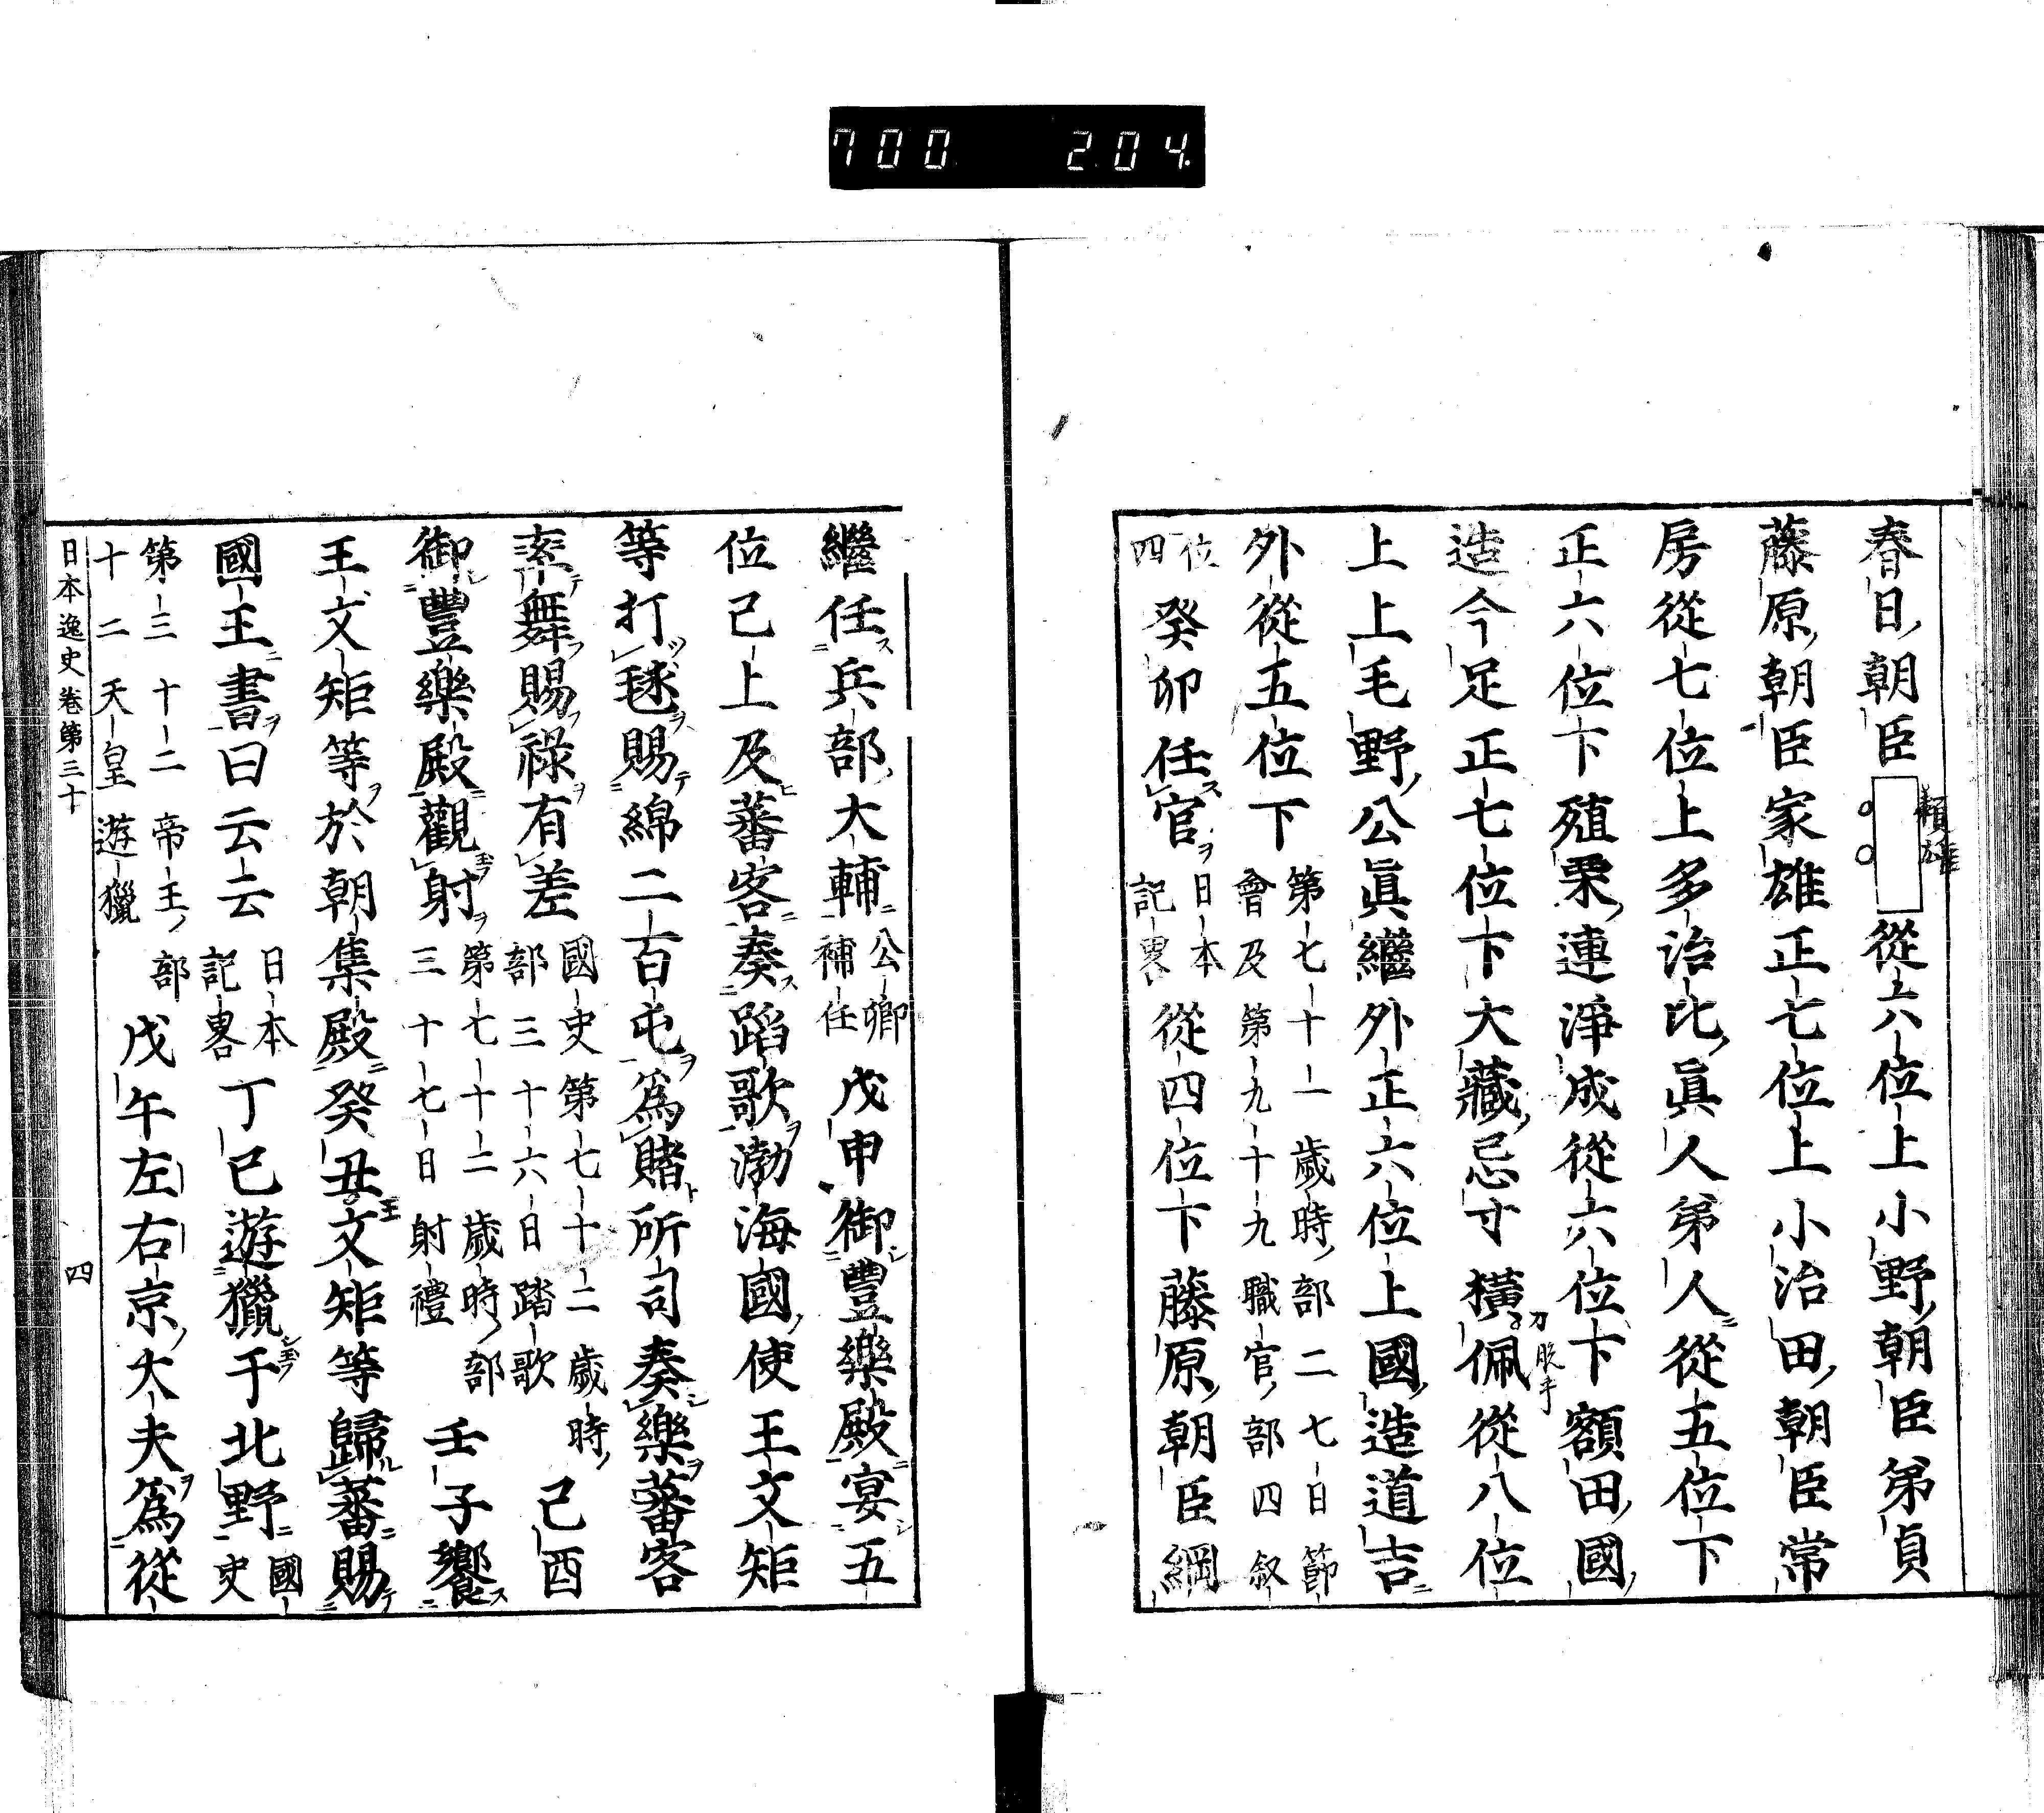 700 204
春日朝臣□從六位上小野朝臣弟貞
藤原朝臣家雄正七位上小治田朝臣常
房從七位上多治比眞人弟人從五位下
正六位下殖栗連淨成從六位下額田國
造今足正七位下大藏忌寸橫佩從八位
上上毛野公眞繼外正六位上上國造道吉
外從五位下
第七十一歲時部二七日節
會及第九十九職官部四叙
位
四
癸卯任官
日本
記畧
從四位下藤原朝臣綱
繼任兵部大輔
公卿
補任
戊申御豐樂殿宴五
位已上及蕃客奏蹈歌渤海國使王文矩
等打毬賜綿二百屯爲賭所司奏樂蕃客
率舞賜祿有差
國史第七十二歲時
部三十六日踏歌
己酉
御豐樂殿觀射
第七十二歲時部
三十七日射禮
壬子饗
王文矩等於朝集殿癸丑王文矩等歸蕃賜
國王書曰云云
日本
記畧
丁巳遊獵于北野
國
史
第三十二帝王部
十二天皇遊獵
戊午左右京大夫爲從
日本逸史卷第三十
四